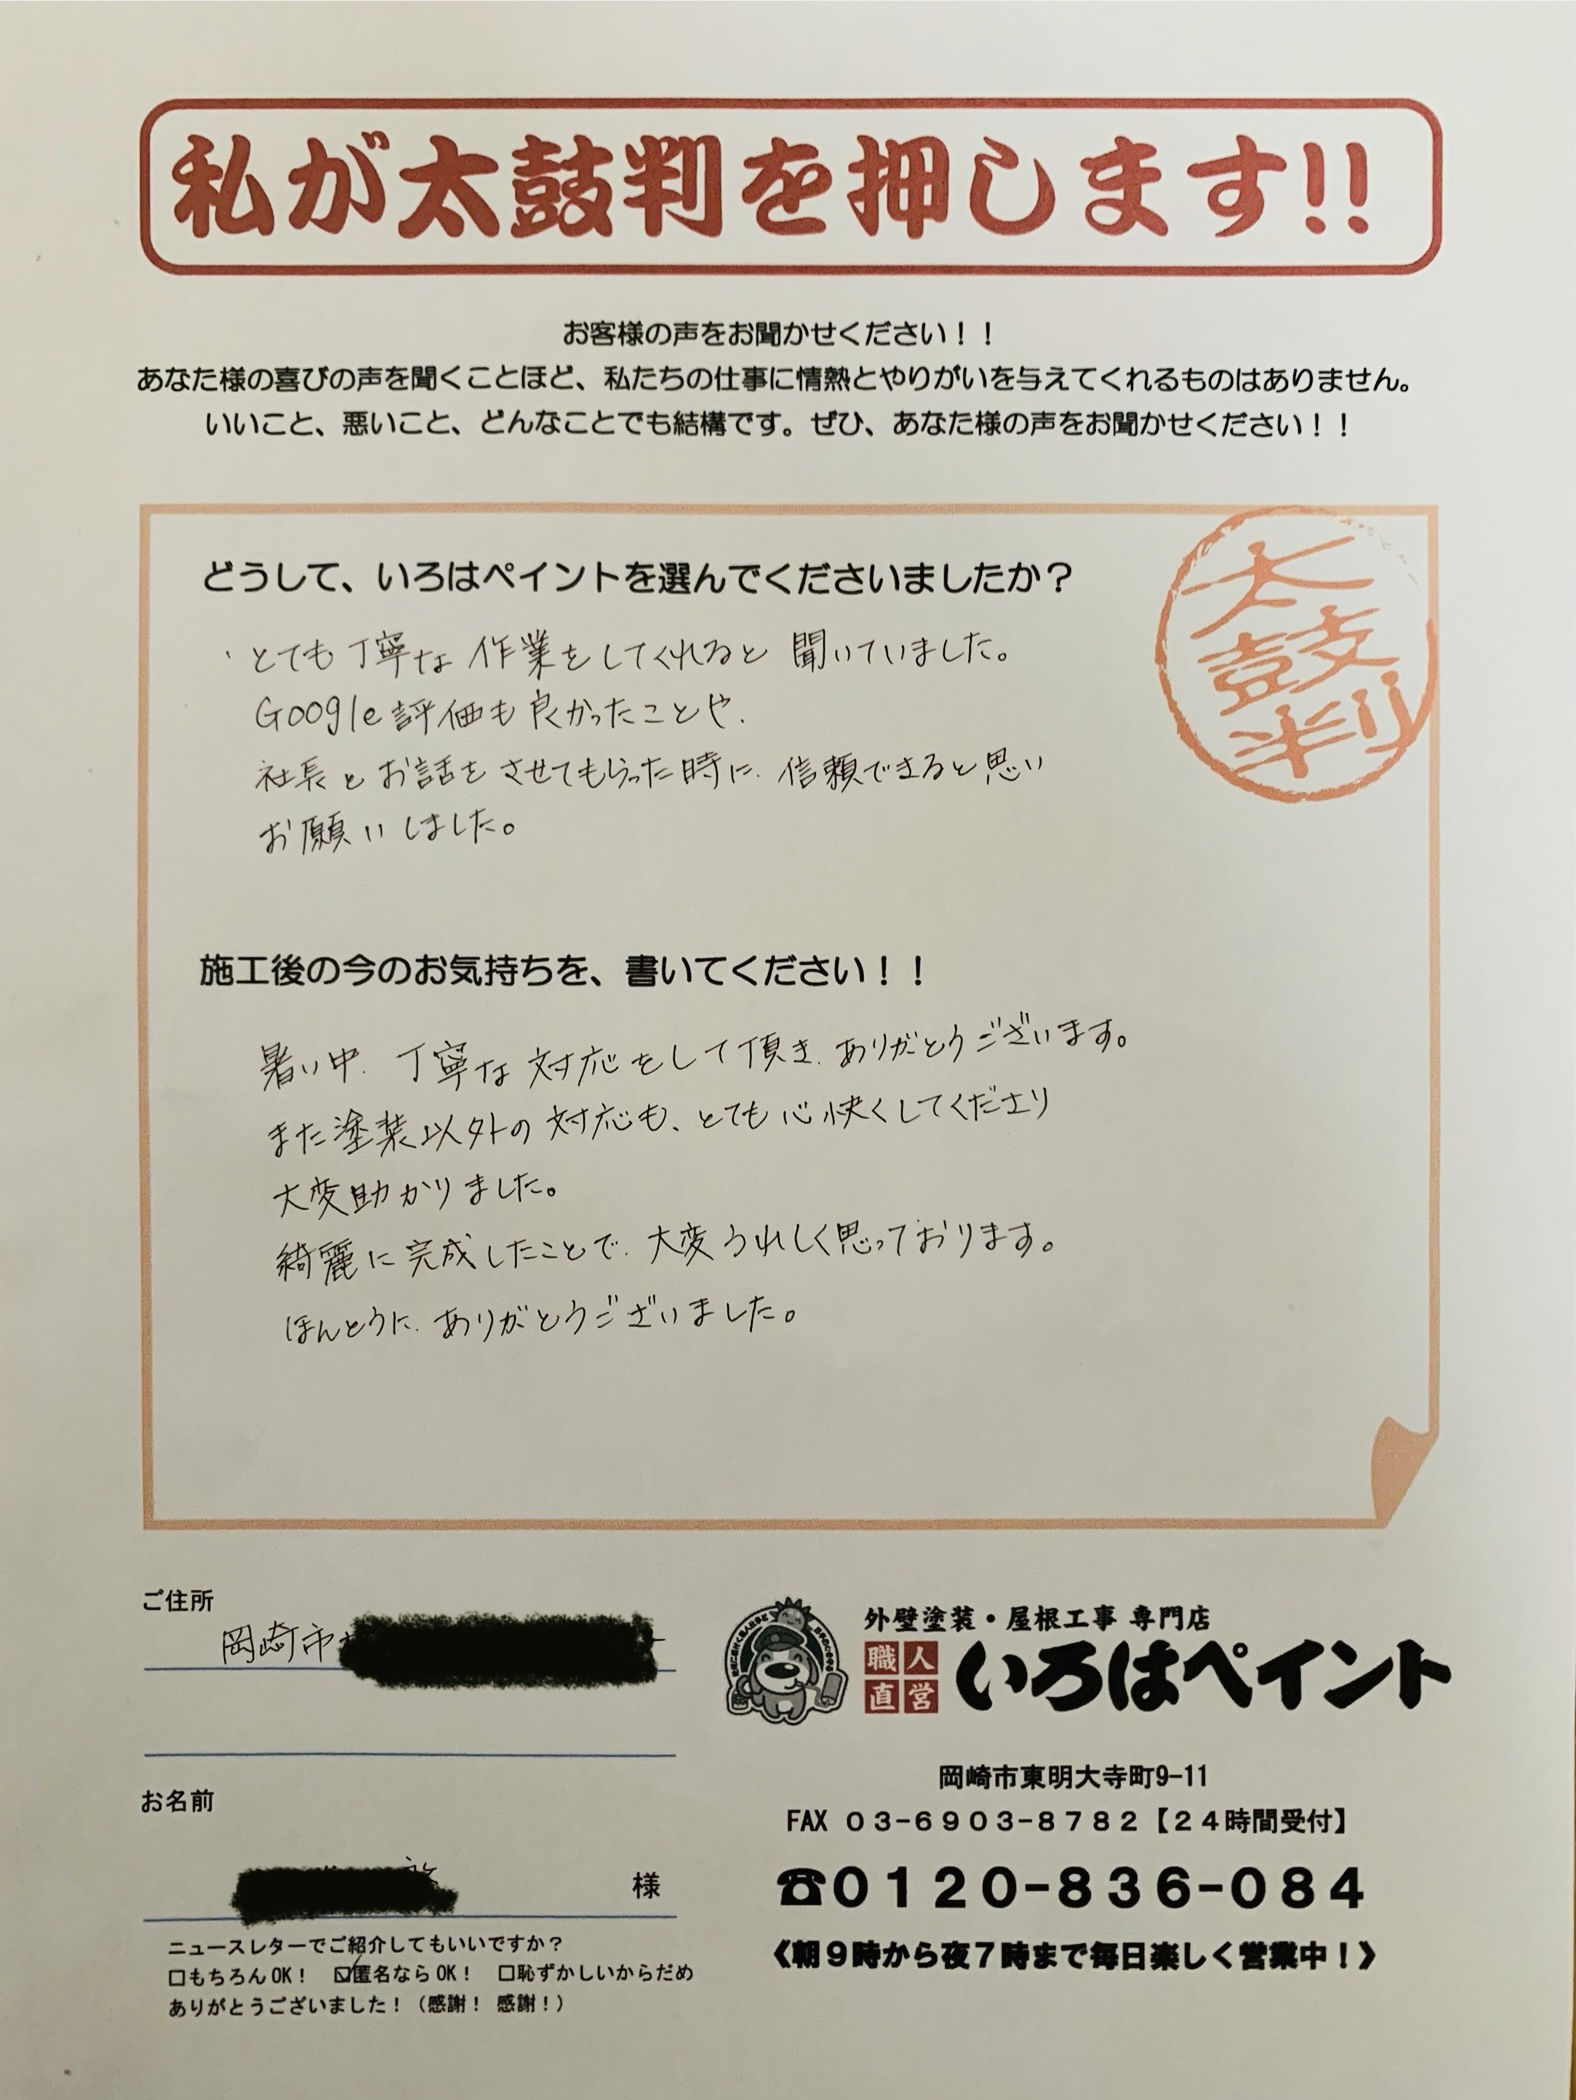 私が太鼓判を押します!!
お客様の声をお聞かせください！！
あなた様の喜びの声を聞くことほど、私たちの仕事に情熱とやりがいを与えてくれるものはありません。
いいこと、悪いこと、どんなことでも結構です。ぜひ、あなた様の声をお聞かせください！！
太鼓判
どうして、いろはペイントを選んでくださいましたか？
・とても丁寧な作業をしてくれると聞いていました。
Google評価も良かったことや、
社長とお話をさせてもらった時に、信頼できると思い
お願いしました。
施工後の今のお気持ちを、書いてください！！
暑い中、丁寧な対応をして頂き、ありがとうございます。
また塗装以外の対応も、とても心快くしてくださり
大変助かりました。
綺麗に完成したことで、大変うれしく思っております。
ほんとうに、ありがとうございました。
ご住所
岡崎市
お名前
様
ニュースレターでご紹介してもいいですか？
□もちろんOK！ ☑匿名ならOK！ □恥ずかしいからだめ
ありがとうございました！（感謝！ 感謝！）
外壁塗装・屋根工事 専門店
職人直営 いろはペイント
岡崎市東明大寺町9-11
FAX ０３-６９０３-８７８２【２４時間受付】
☎0120-836-084
《朝９時から夜７時まで毎日楽しく営業中！》